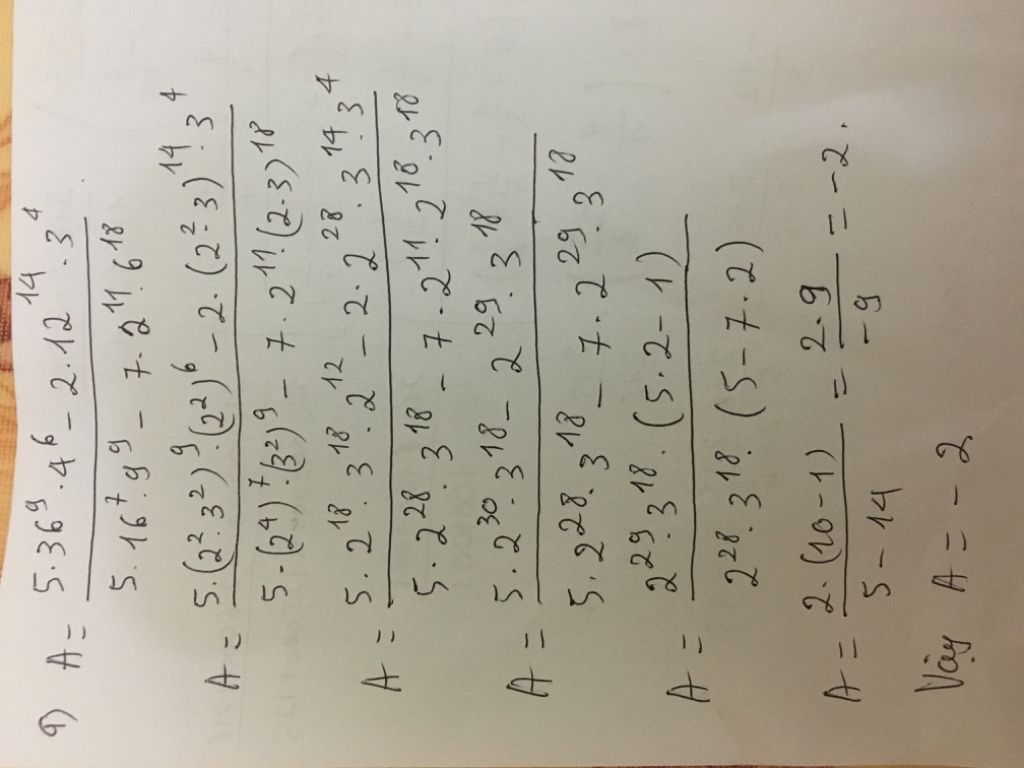 9) A = \frac{5 \cdot 36^9 \cdot 4^6 - 2 \cdot 12^{14} \cdot 3^4}{5 \cdot 16^7 \cdot 9^9 - 7 \cdot 2^{11} \cdot 6^{18}}
A = \frac{5 \cdot (2^2 \cdot 3^2)^9 \cdot (2^2)^6 - 2 \cdot (2^2 \cdot 3)^{14} \cdot 3^4}{5 \cdot (2^4)^7 \cdot (3^2)^9 - 7 \cdot 2^{11} \cdot (2 \cdot 3)^{18}}
A = \frac{5 \cdot 2^{18} \cdot 3^{18} \cdot 2^{12} - 2 \cdot 2^{28} \cdot 3^{14} \cdot 3^4}{5 \cdot 2^{28} \cdot 3^{18} - 7 \cdot 2^{11} \cdot 2^{18} \cdot 3^{18}}
A = \frac{5 \cdot 2^{30} \cdot 3^{18} - 2^{29} \cdot 3^{18}}{5 \cdot 2^{28} \cdot 3^{18} - 7 \cdot 2^{29} \cdot 3^{18}}
A = \frac{2^{29} \cdot 3^{18} \cdot (5 \cdot 2 - 1)}{2^{28} \cdot 3^{18} \cdot (5 - 7 \cdot 2)}
A = \frac{2 \cdot (10 - 1)}{5 - 14} = \frac{2 \cdot 9}{-9} = -2.
Vậy A = -2